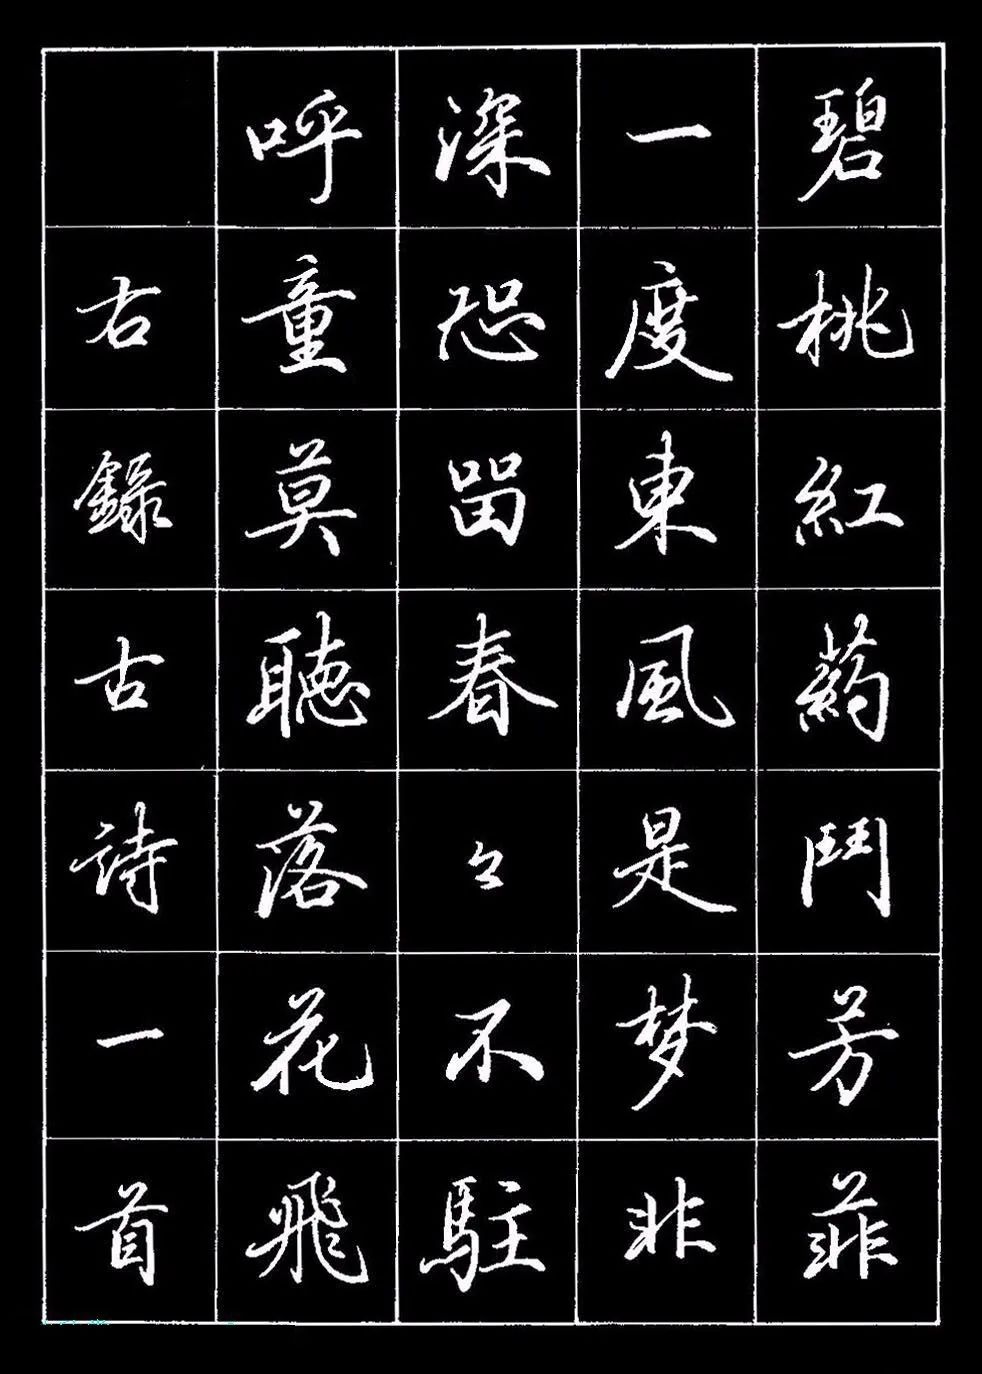 碧桃紅药鬥芳菲
一度東風是梦非
深恐留春々不駐
呼童莫聽落花飛
右錄古詩一首